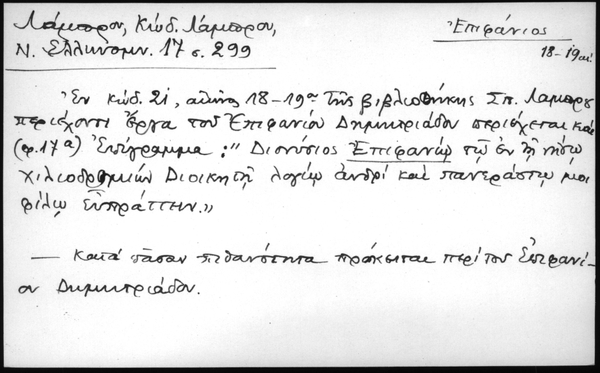 Λάμπρου, Κώδ. Λάμπρου,
Ν. Ἑλληνομν. 17 σ. 299
Ἐπιφάνιος
18-19 αἰ.
Ἐν κώδ. 21, αἰῶνος 18-19ου τῆς βιβλιοθήκης Σπ. Λάμπρου
περιέχοντι ἔργα τοῦ Ἐπιφανίου Δημητριάδου περιέχεται καὶ
(φ. 17α) Ἐπίγραμμα: "Διονύσιος Ἐπιφανίῳ τῷ ἐν τῇ νήσῳ
χιλιοδρομιῶν Διοικητῇ λογίῳ ἀνδρί καὶ πανεράστῳ μοι
φίλῳ εὖ πράττειν."
— Κατά πᾶσαν πιθανότητα πρόκειται περί τοῦ Ἐπιφανί-
ου Δημητριάδου.